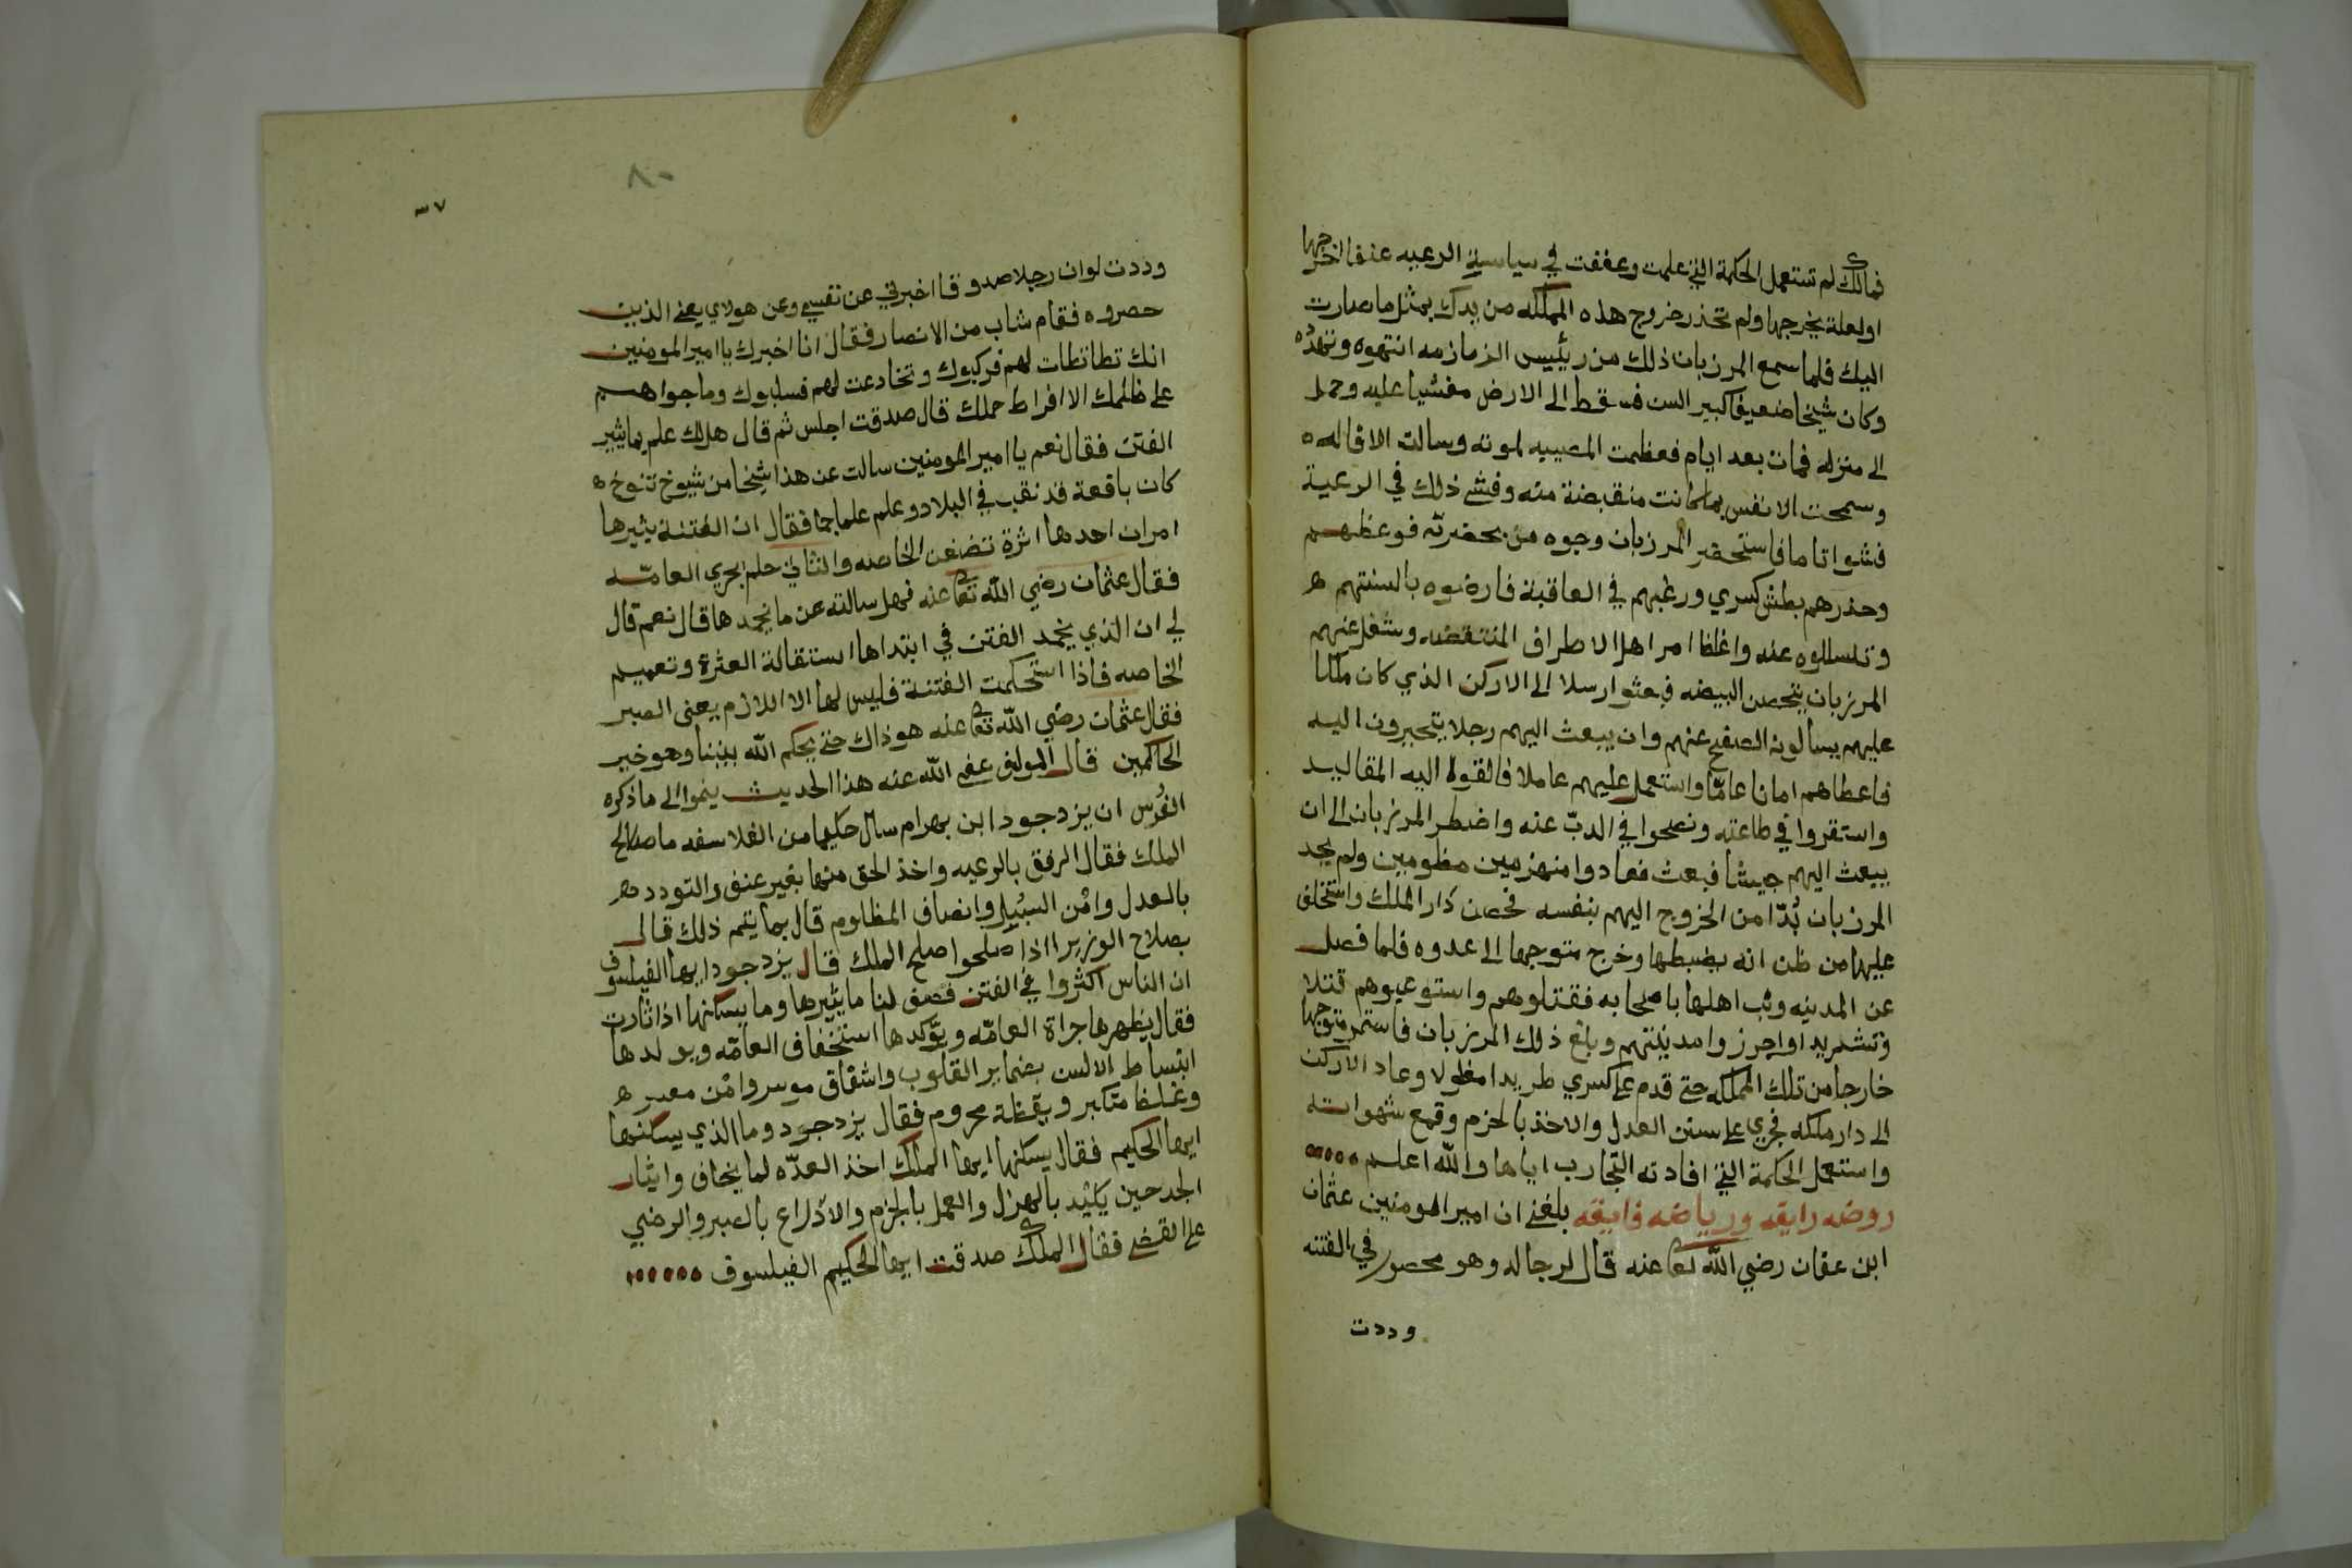 فمالك لم تستعمل الحكمة التي علمت وعففت في سياسية الرعيه عنفا اخرجها
اولعلة يخرجها ولم تحذر خروج هذه المملكه من يدك بمثل ما صارت
اليك فلما سمع المرزبان ذلك من رئيس الزمازمه انتهوه وتهدّه
وكان شيخا ضعيفا كبير السن فسقط الى الارض مغشيا عليه وحمل
الى منزله فمات بعد ايام فعظمت المصيبه لموته وسالت الاقاله ه
وسمحت الانفس بما كانت منقبضة منه وفشي ذلك في الرعية
فشوا تاما فاستحضر المرزبان وجوه من بحضرته فوعظهم
وحذرهم بطش كسري ورغبهم في العاقبة فارضوه بالسنتهم ه
وتسللوه عنه واغلظ امر اهل الاطراف المنتقضه وشغل عنهم
المرزبان بتحصن البيضه فبعثوا رسلا الى الاركن الذي كان ملكا
عليهم يسالونه الصفح عنهم وان يبعث اليهم رجلا يتحبرون اليه
فاعطاهم امانا عامّا واستعمل عليهم عاملا فالقوا اليه المقاليد
واستقروا في طاعته ونصحوا في الدبّ عنه واضطر المرزبان الى ان
يبعث اليهم جيشا فبعث فعادوا منهزمين مظومين ولم يجد
المرزبان بُدّا من الخروج اليهم بنفسه فحصن دار الملك واستخلف
عليها من ظن انه يضبطها وخرج متوجها الى عدوه فلما فصل
عن المدينه وثب اهلها باصحابه فقتلوهم واستوعبوهم قتلا
وتشديدا واحرزوا مدينتهم وبلغ ذلك المرزبان فاستمر متوجها
خارجا من تلك المملكه حتى قدم على كسري طريدا مغلولا وعاد الاركن
الى دار ملكه فجري على سنن العدل والاخذ بالحزم وقمع شهواته
واستعمل الحكمة التي افادته التجارب اياها والله اعلم
روضه رايقه ورياضه فايقه بلغني ان امير المومنين عثمان
ابن عفان رضي الله تعا عنه قال لرجاله وهو محصور في الفتنه
وددت
٨٠
٣٧
وددت لو ان رجلا صدوقا اخبرني عن نفسي وعن هولاي يعني الذين
حصروه فقام شاب من الانصار فقال انا اخبرك يا امير المومنين
انك تطاتطات لهم فركبوك وتخادعت لهم فسلبوك وما جراهم
على ظلمك الا افراط حملك قال صدقت اجلس ثم قال هل لك علم بما يثير
الفتن فقال نعم يا امير المومنين سالت عن هذا شيخا من شيوخ تنوخ ه
كان باقعة قد نقب في البلاد وعلم علما جما فقال ان الفتنة يثيرها
امران احدها اثرة تضغن الخاصه والثاني حلم يجري العامّه
فقال عثمان رضي الله تعا عنه فهل سالته عن ما يخمدها قال نعم قال
لي ان الذي يخمد الفتن في ابتداها استقالة العثرة وتعميم
الخاصه فاذا استحكمت الفتنة فليس لها الا اللازم يعني الصبر
فقال عثمان رضي الله تعا عنه هو ذاك حتى يحكم الله بيننا وهو خير
الحاكمين قال المولف عفى الله عنه هذا الحديث ينموا الى ما ذكره
الفُرس ان يزدجود ابن بهرام سال حكيما من الفلاسفه ما صلاح
الملك فقال الرفق بالرعيه واخذ الحق منها بغير عنف والتودد ه
بالعدل وامْن السُبُل وانصاف المظلوم قال بما يتم ذلك قال
بصلاح الوزير ااذا صلحوا صلح الملك قال يزدجود ايها الفيلسوف
ان الناس اكثروا في الفتن فصف لنا ما يثيرها وما يسكنها اذا ثارت
فقال يظهرها جراة العامّه ويؤكدها استخفاف العامّه ويولدها
انبساط الالسن بضماير القلوب واشفاق موسر وامْن معسر ه
وغلظ متكبر ويقظة محروم فقال يزدجود وما الذي يسكنها
ايها الحكيم فقال يسكنها ايها الملك اخذ العدّه لما يخاف وايثار
الجد حين يلتد بالهزل والعمل بالحزم والادّراع بالصبر والرضي
على القضى فقال الملك صدقت ايها الحكيم الفيلسوف